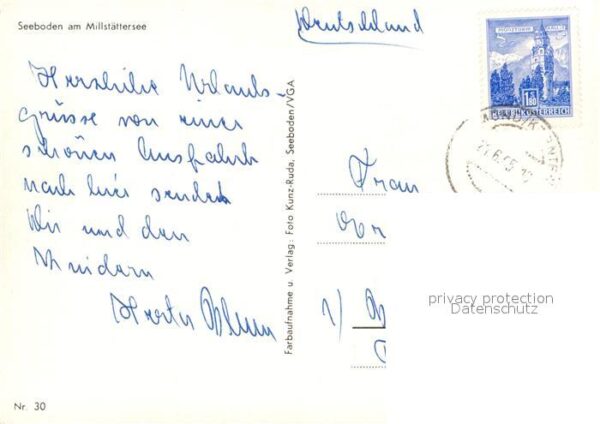 Seeboden am Millstättersee
Deutschland
Herzliche Urlaubs-
grüsse von einer
schönen Ausfahrt
nach hier sendet
Dir und den
Kindern
Herta
Frau
1)
Farbaufnahme u. Verlag: Foto Kunz-Ruda, Seeboden/VGA
REPUBLIK ÖSTERREICH
1.80
privacy protection
Datenschutz
Nr. 30